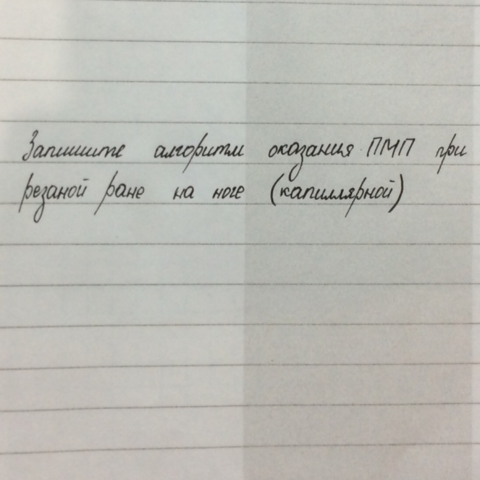 Запишите алгоритм оказания ПМП при
резаной ране на ноге (капиллярной)